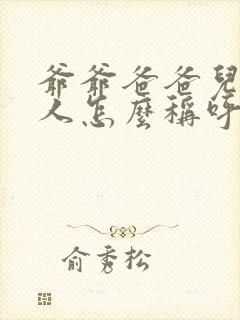 爺爺爸爸兒
人怎麼稱呼
俞秀松